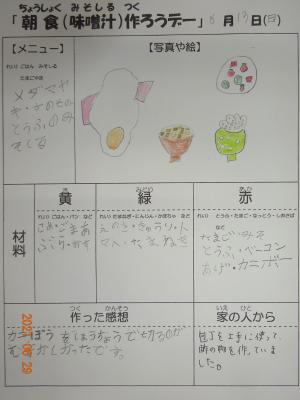 ちょうしょく みそしる つく
「朝食(味噌汁)作ろうデー」6月13日(日)
【メニュー】
れい)ごはん みそしる
たまごやき
メダマヤ
キ・
とうふのみ
そしる
【写真や絵】
材料
き
黄
れい)ごはん・パン など
みどり
緑
れい)たまねぎ・にんじん・かぼちゃ など
えのき・きゅうり・ト
マト・たまねぎ
あか
赤
れい) とうふ・たまご・なっとう・しおさけ など
たまご・みそ
とうふ・ベーコン
あげ・カニボー
つく かんそう
作った感想
カニぼうをほうちょうで切るのが
むずかしかったです。
いえ ひと
家の人から
包丁を上手に使って、
酢の物を作っていま
した。
2021/06/29